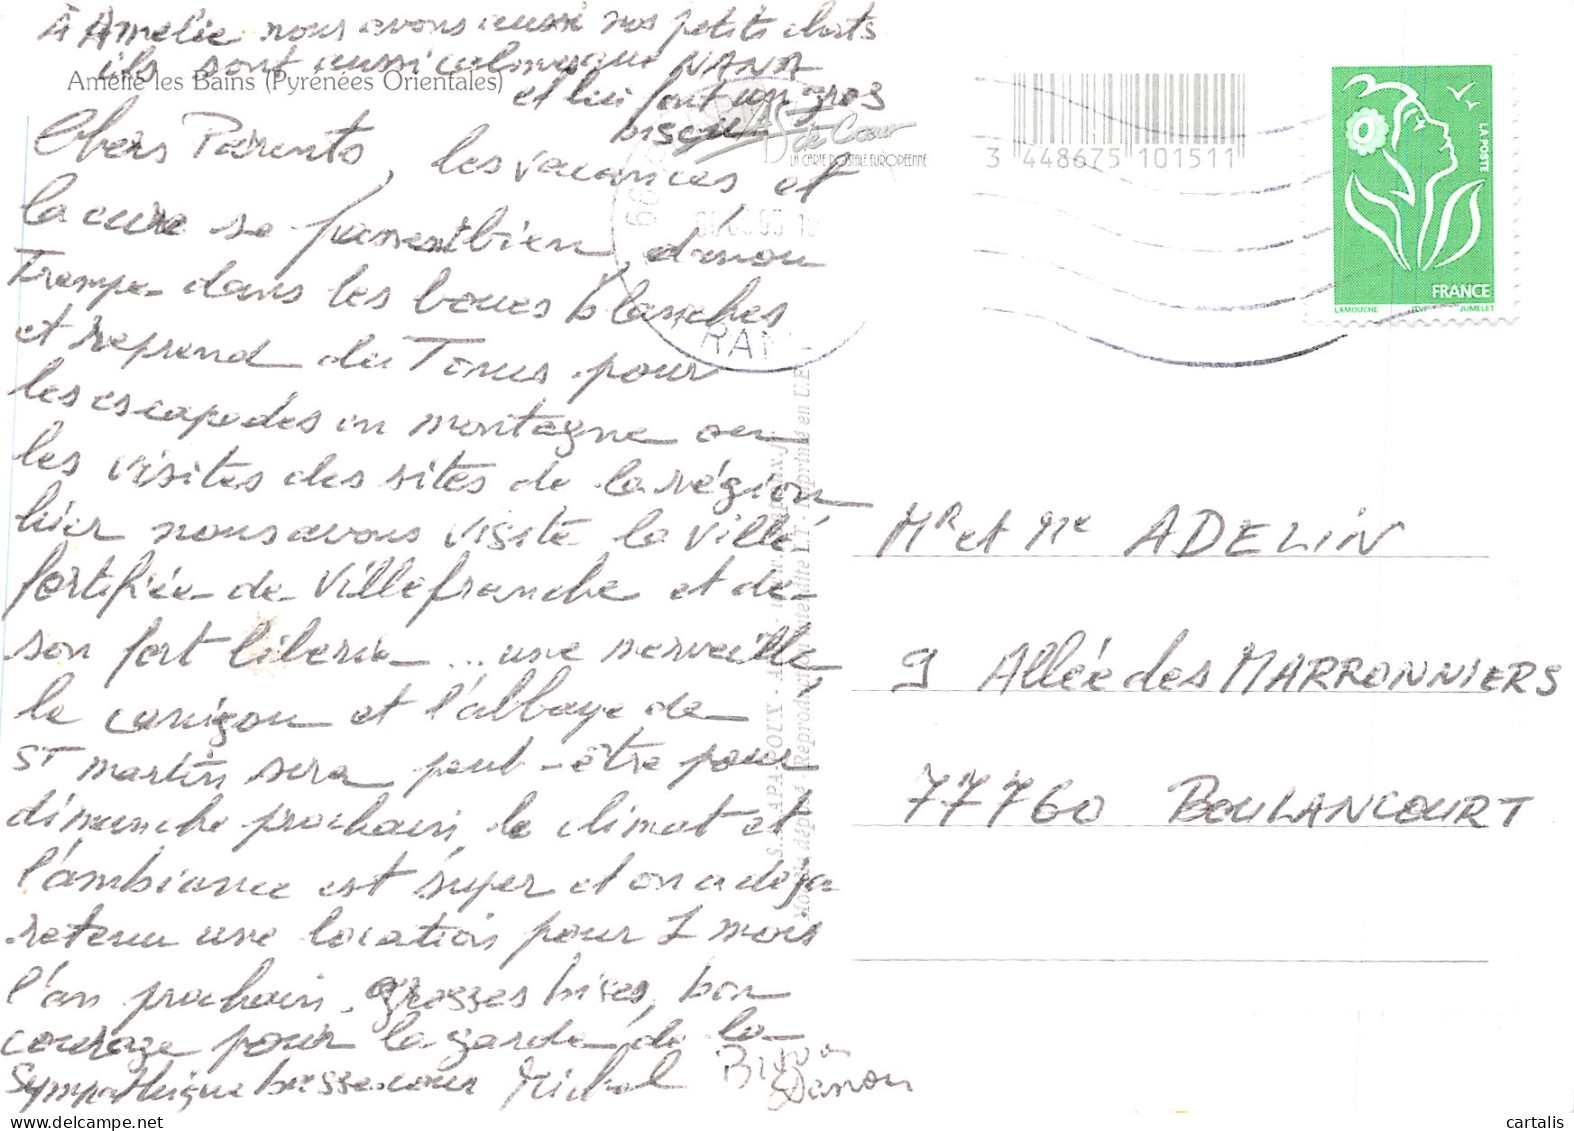 À Amélie nous avons aussi nos petits chats
ils sont aussi calmes que NANA
et lui font un gros
bisou
Amélie les Bains (Pyrénées Orientales)
Chers Parents, les vacances et
la cure se passent bien,
Trempe dans les boues blanches
et reprend du Tonus pour
les escapades en montagne ou
les visites des sites de la région,
hier nous avons visité la ville
fortifiée de Villefranche et de
son fort libéria ... une merveille,
le canigou et l'abbaye de
ST martin sera peut-être pour
dimanche prochain, le climat et
l'ambiance est super et on a déja
retenu une location pour 1 mois
l'an prochain. grosses bises, bon
courage pour la garde de la
Sympathique basse-cour Michel
de Cœur
LA CARTE POSTALE EUROPEENNE
3 448675 101511
LA POSTE
FRANCE
LAMOUCHE JUMELET
Mr et Me ADELIN
9 Allée des MARRONNIERS
77760 BOULANCOURT
cartalis.com